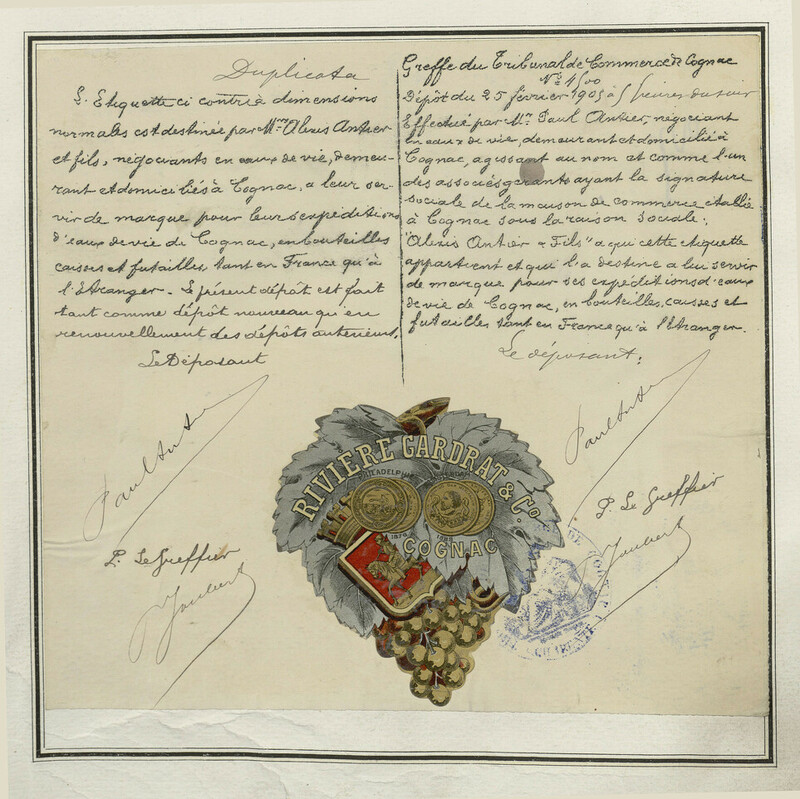 Duplicata
L'Etiquette ci contre à dimensions
normales est destinée par Mrs Alexis Antier
et fils, négociants en eaux de vie, demeu-
rant et domiciliés à Cognac, a leur ser-
vir de marque pour leurs expéditions
d'eaux de vie de Cognac, en bouteilles
caisses et futailles, tant en France qu'à
l'Etranger. Le présent dépôt est fait
tant comme dépôt nouveau qu'en
renouvellement des dépôts antérieurs.
Le Déposant
Paul Antier
P. Le Greffier
Joubert
Greffe du Tribunal de Commerce de Cognac
No 1500
Dépôt du 25 février 1905 à 5 heures du soir
Effectué par Mr. Paul Antier, négociant
en eaux de vie, demeurant et domicilié à
Cognac, agissant au nom et comme l'un
des associés gérants ayant la signature
sociale de la maison de commerce établie
à Cognac sous la raison sociale:
"Alexis Antier & Fils" a qui cette etiquette
appartient et qui l'a destiné a lui servir
de marque pour ses expéditions d'eaux
de vie de Cognac, en bouteilles, caisses et
futailles tant en France qu'à l'Etranger.
Le déposant:
Paul Antier
P. Le Greffier
Joubert
RIVIERE GARDRAT & Co.
PHILADELPHIE
COGNAC
CHARENTE